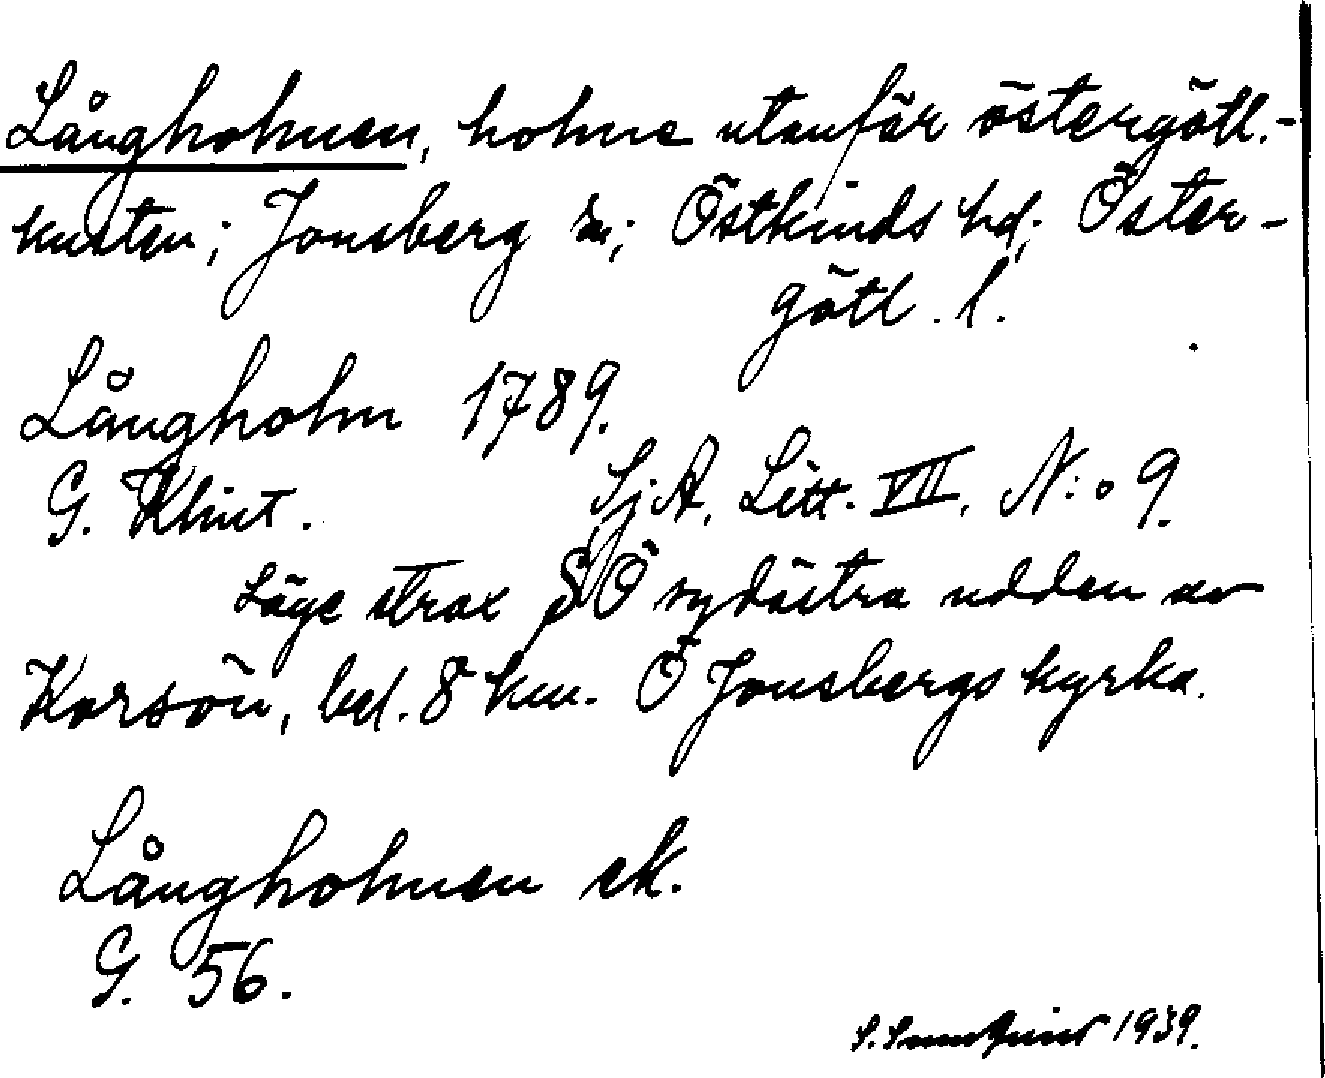 Långholmen, holme utanför östergötl.-
kusten; Jonsberg sn; Östkinds hd; Öster-
götl. l.
Långholm 1789.
G. Klint. Sj.A. Litt. VII. N:o 9.
Läge strax SO sydöstra udden av
Korsön, bel. 8 km. Ö Jonsbergs kyrka.
Långholmen ek.
G. 56.
S. 1939.